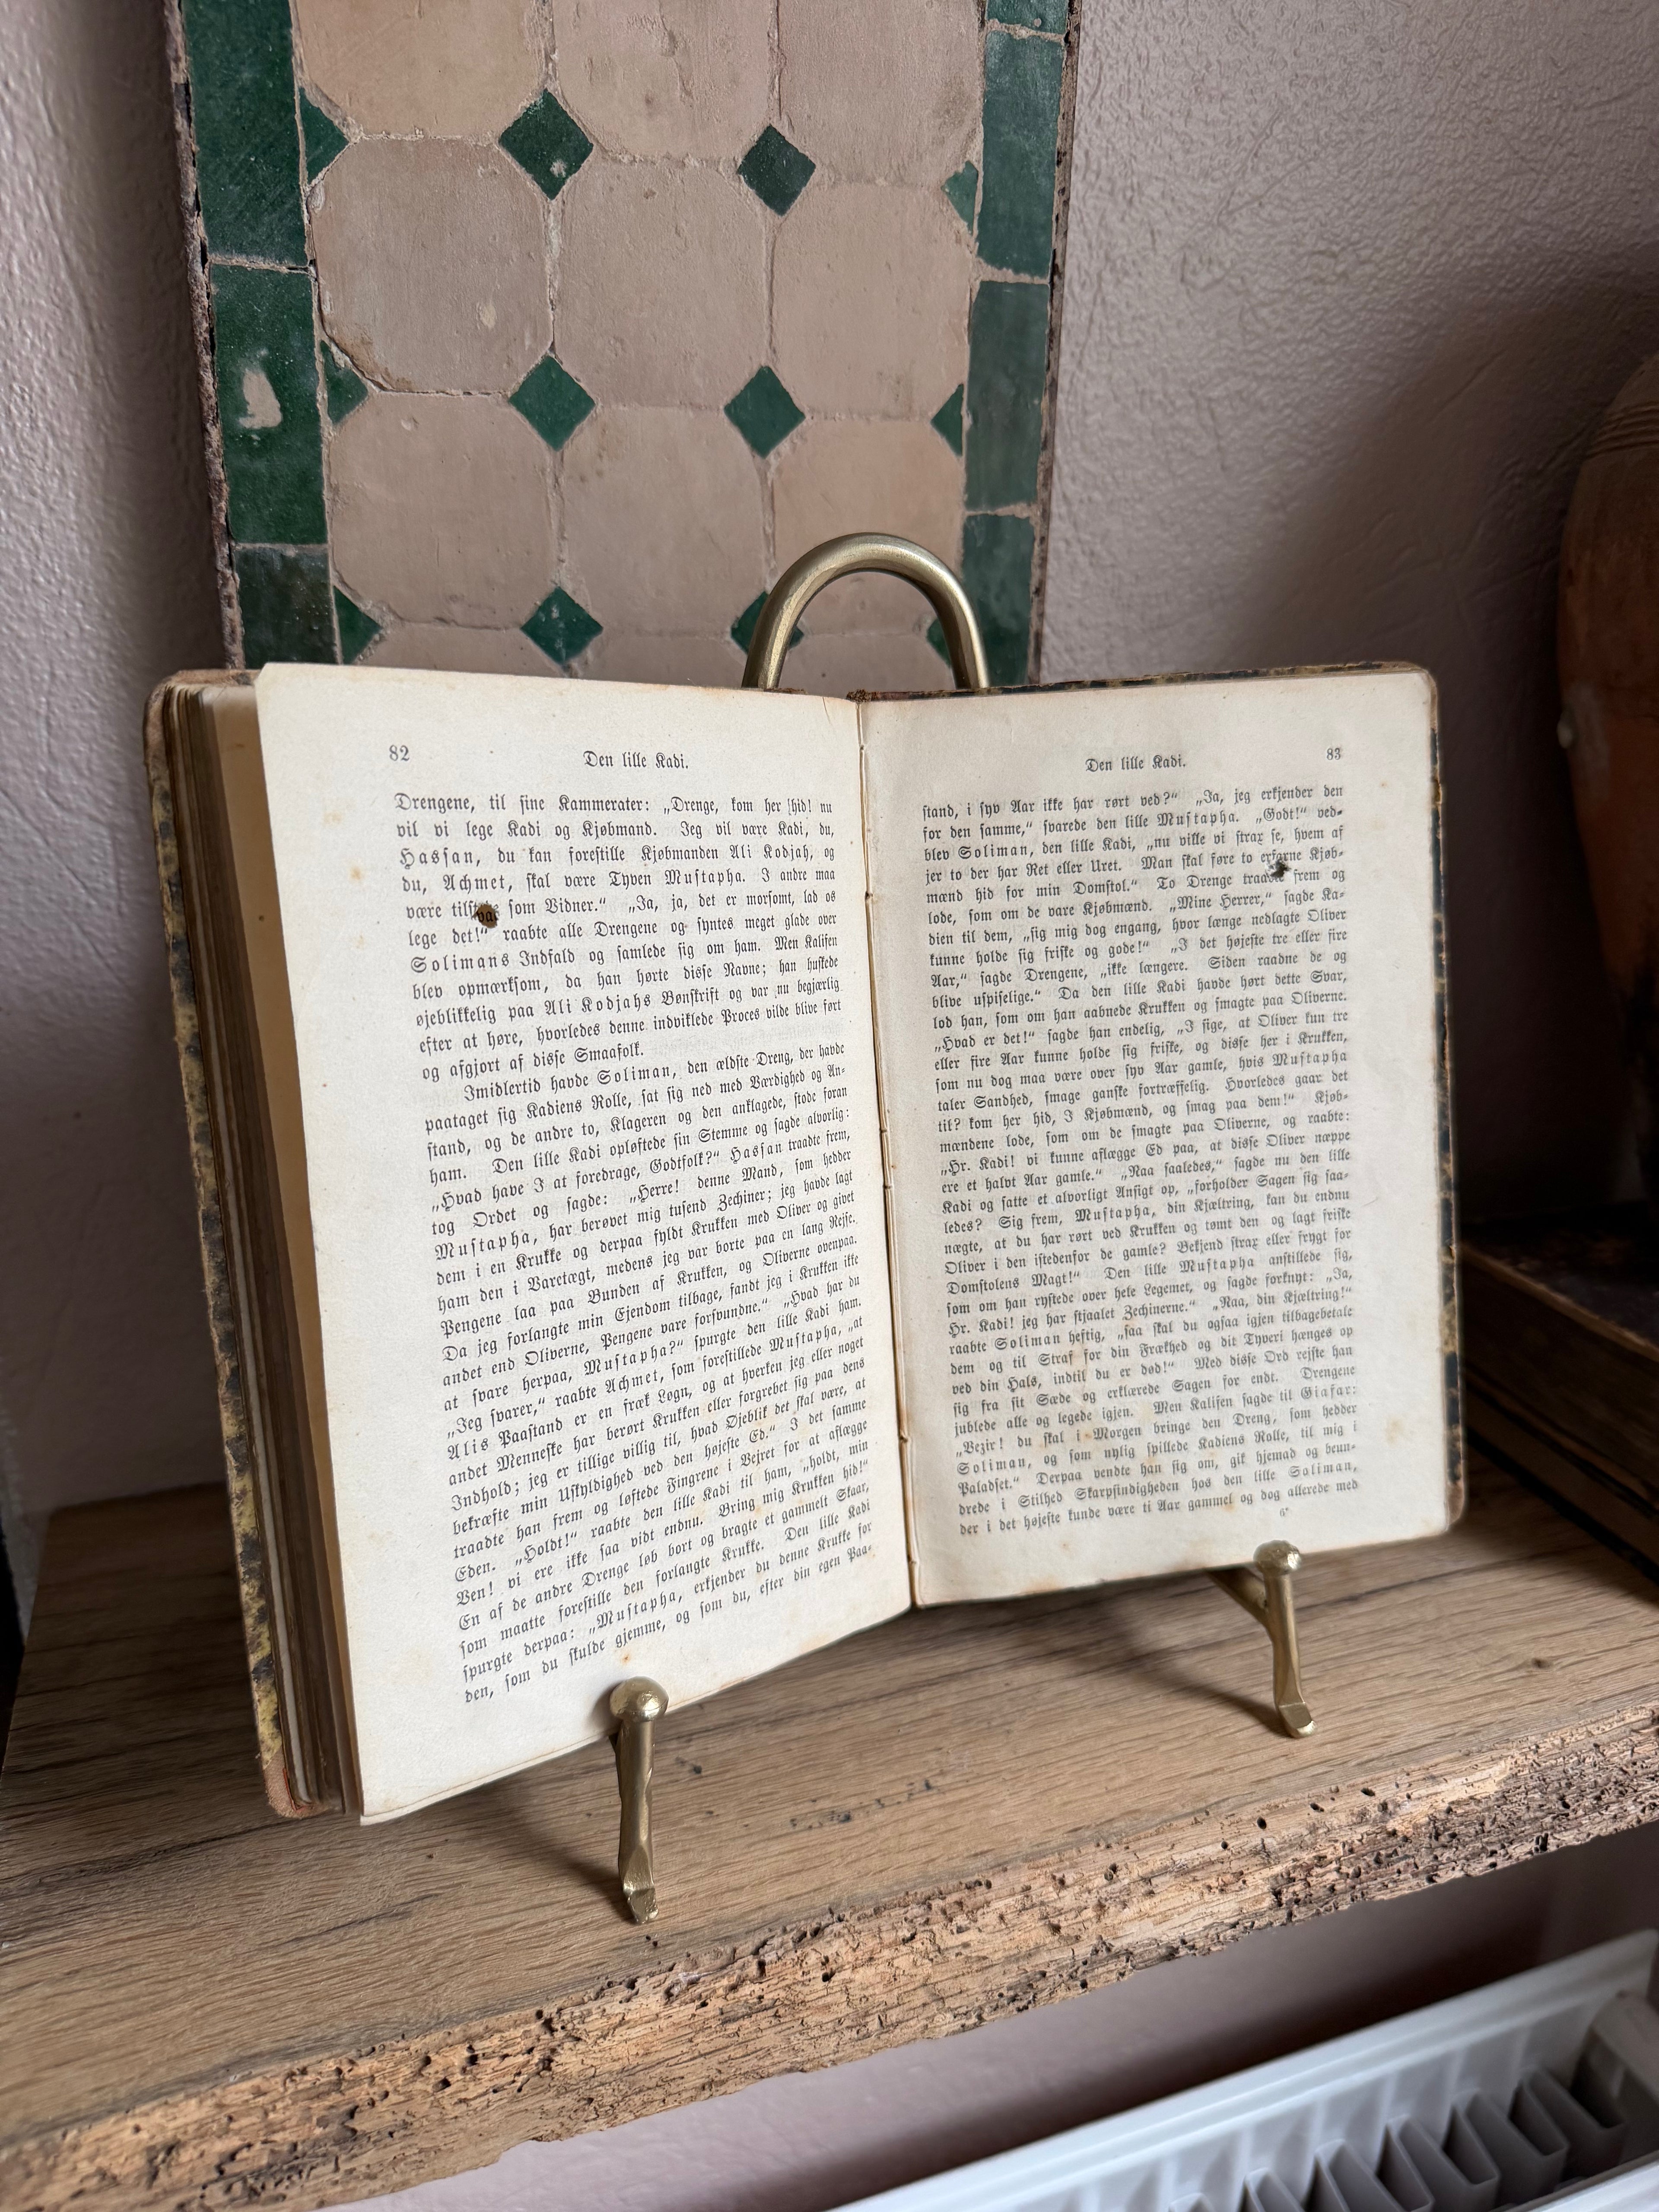 82
Den lille Kadi.
Drengene, til sine Kammerater: „Drenge, kom her hid! nu
vil vi lege Kadi og Kjøbmand. Jeg vil være Kadi, du,
Hassan, du kan forestille Kjøbmanden Ali Kodjah, og
du, Achmet, skal være Tyven Mustapha. I andre maa
være som Vidner.“ „Ja, ja, det er morsomt, lad os
lege det!“ raabte alle Drengene og syntes meget glade over
Solimans Indfald og samlede sig om ham. Men Kalifen
blev opmærksom, da han hørte disse Navne; han huskede
øjeblikkelig paa Ali Kodjahs Bønskrift og var nu begjærlig
efter at høre, hvorledes denne indviklede Proces vilde blive ført
og afgjort af disse Smaafolk.
Imidlertid havde Soliman, den ældste Dreng, der havde
paataget sig Kadiens Rolle, sat sig ned med Værdighed og An-
stand, og de andre to, Klageren og den anklagede, stode foran
ham. Den lille Kadi opløftede sin Stemme og sagde alvorlig:
„Hvad have I at foredrage, Godtfolk?“ Hassan traadte frem,
tog Ordet og sagde: „Herre! denne Mand, som hedder
Mustapha, har berøvet mig tusend Zechiner; jeg havde lagt
dem i en Krukke og derpaa fyldt Krukken med Oliver og givet
ham den i Varetægt, medens jeg var borte paa en lang Rejse.
Pengene laa paa Bunden af Krukken, og Oliverne ovenpaa.
Da jeg forlangte min Ejendom tilbage, fandt jeg i Krukken ikke
andet end Oliverne, Pengene vare forsvundne.“ „Hvad har du
at svare herpaa, Mustapha?“ spurgte den lille Kadi ham.
„Jeg svarer,“ raabte Achmet, som forestillede Mustapha, „at
Alis Paastand er en fræk Løgn, og at hverken jeg eller noget
andet Menneske har berørt Krukken eller forgrebet sig paa dens
Indhold; jeg er tillige villig til, hvad Øjeblik det skal være, at
bekræfte min Uskyldighed ved den højeste Ed.“ I det samme
traadte han frem og løftede Fingrene i Vejret for at aflægge
Eden. „Holdt!“ raabte den lille Kadi til ham, „holdt, min
Ven! vi ere ikke saa vidt endnu. Bring mig Krukken hid!“
En af de andre Drenge løb bort og bragte et gammelt Skaar,
som maatte forestille den forlangte Krukke. Den lille Kadi
spurgte derpaa: „Mustapha, erkjender du denne Krukke for
den, som du skulde gjemme, og som du, efter din egen Paa-
Den lille Kadi.
83
stand, i syv Aar ikke har rørt ved?“ „Ja, jeg erkjender den
for den samme,“ svarede den lille Mustapha. „Godt!“ ved-
blev Soliman, den lille Kadi, „nu ville vi strax se, hvem af
jer to der har Ret eller Uret. Man skal føre to erfarne Kjøb-
mænd hid for min Domstol.“ To Drenge traadte frem og
lode, som om de vare Kjøbmænd. „Mine Herrer,“ sagde Ka-
dien til dem, „sig mig dog engang, hvor længe nedlagte Oliver
kunne holde sig friske og gode!“ „I det højeste tre eller fire
Aar,“ sagde Drengene, „ikke længere. Siden raadne de og
blive uspiselige.“ Da den lille Kadi havde hørt dette Svar,
lod han, som om han aabnede Krukken og smagte paa Oliverne.
„Hvad er det!“ sagde han endelig, „I sige, at Oliver kun tre
eller fire Aar kunne holde sig friske, og disse her i Krukken,
som nu dog maa være over syv Aar gamle, hvis Mustapha
taler Sandhed, smage ganske fortræffelig. Hvorledes gaar det
til? kom her hid, I Kjøbmænd, og smag paa dem!“ Kjøb-
mændene lode, som om de smagte paa Oliverne, og raabte:
„Hr. Kadi! vi kunne aflægge Ed paa, at disse Oliver næppe
ere et halvt Aar gamle.“ „Naa saaledes,“ sagde nu den lille
Kadi og satte et alvorligt Ansigt op, „forholder Sagen sig saa-
ledes? Sig frem, Mustapha, din Kjæltring, kan du endnu
nægte, at du har rørt ved Krukken og tømt den og lagt friske
Oliver i den istedenfor de gamle? Bekjend strax eller frygt for
Domstolens Magt!“ Den lille Mustapha anstillede sig,
som om han rystede over hele Legemet, og sagde forknyt: „Ja,
Hr. Kadi! jeg har stjaalet Zechinerne.“ „Naa, din Kjæltring!“
raabte Soliman heftig, „saa skal du ogsaa igjen tilbagebetale
dem og til Straf for din Frækhed og dit Tyveri hænges op
ved din Hals, indtil du er død!“ Med disse Ord rejste han
sig fra sit Sæde og erklærede Sagen for endt. Drengene
jublede alle og legede igjen. Men Kalifen sagde til Giafar:
„Vezir! du skal i Morgen bringe den Dreng, som hedder
Soliman, og som nylig spillede Kadiens Rolle, til mig i
Paladset.“ Derpaa vendte han sig om, gik hjemad og beun-
drede i Stilhed Skarpsindigheden hos den lille Soliman,
der i det højeste kunde være ti Aar gammel og dog allerede med
6*